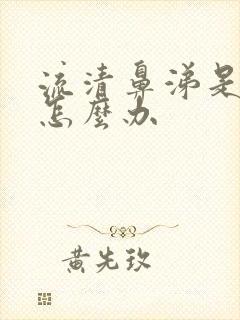 流清鼻涕是
怎麼办
黄先玫